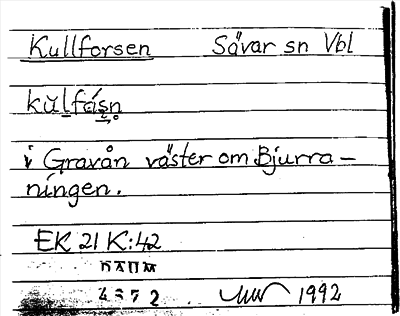 Kullforsen Sävar sn Vbl
kŭlfásn̥
i Gravån väster om Bjurra-
ningen.
EK 21 K:42
DAUM
4372 1992